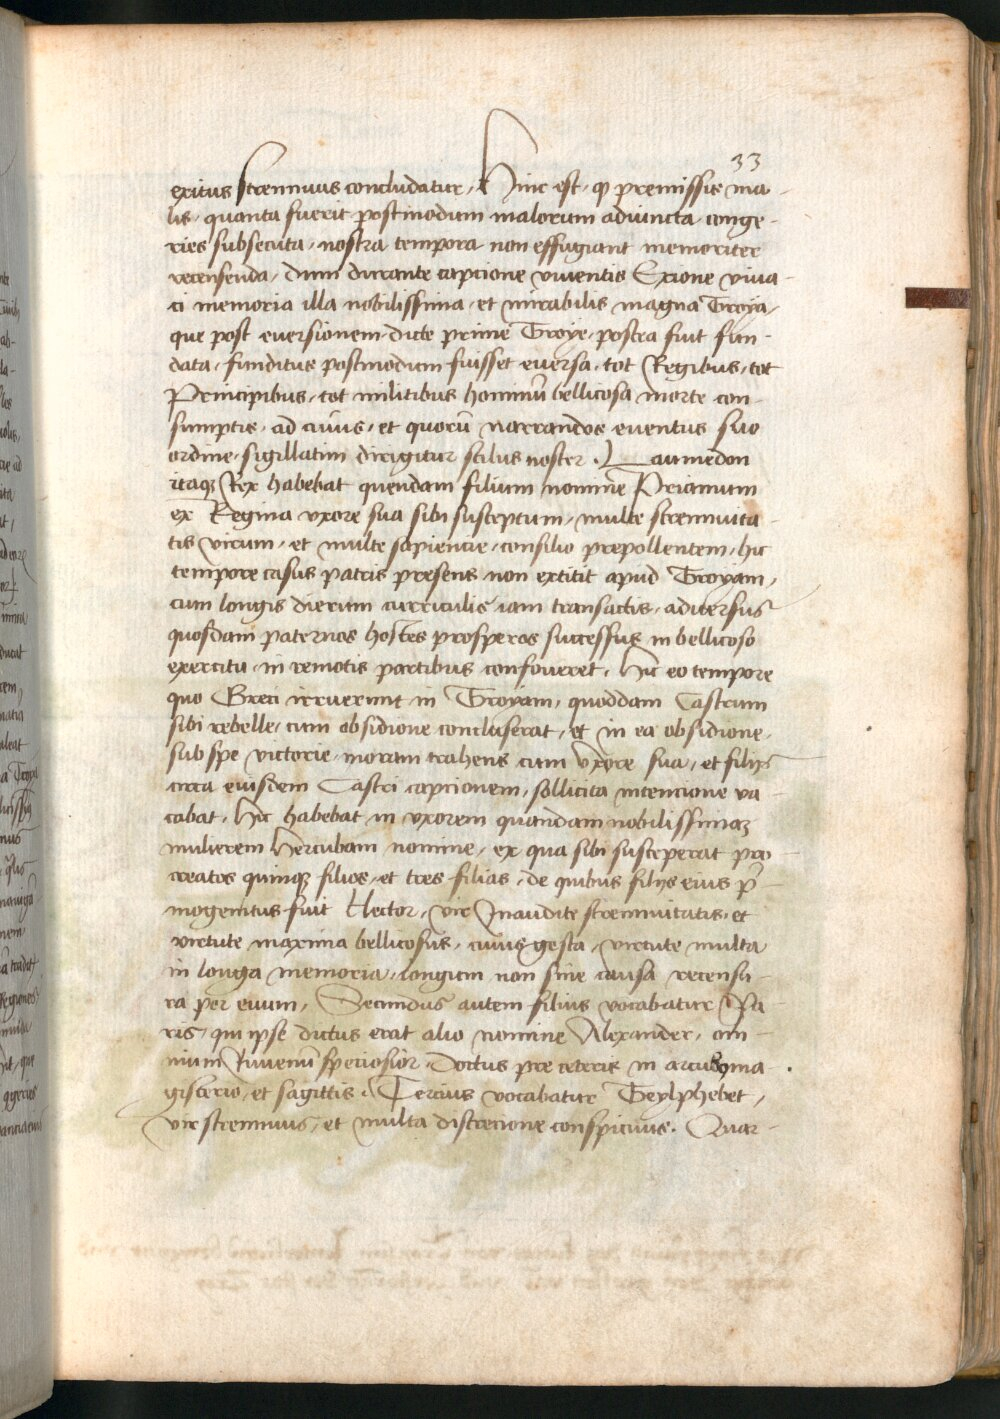 33
exitus strennuus concludatur, Hinc est, ꝙ premissis ma-
lis, quanta fuerit postmodum malorum adiuncta, conge-
ries subsecuta, nostra tempora non effugiant memoriter
recensenda, dum durante capcione viuentis Exione viua-
ci memoria illa nobilissima, et mirabilis magna Troya,
que post euersionem dicte prime Troye, postea fuit fun-
data, funditus postmodum fuisset euersa, tot Regibus, tot
Principibus, tot militibus hominū bellicosa morte con-
sumptis, ad cuius, et quorū narrandos euentus suo
ordine, sigillatim dirigitur stilus noster. Laumedon
itaqꝫ Rex habebat quendam filium nomine Priamum
ex Regina vxore sua sibi susceptum, multe strennuita-
tis virum, et multe sapiencie, consilio prepollentem, hic
tempore casus patris presens non extitit apud Troyam,
cum longis dierum curriculis iam transactis, aduersus
quosdam paternos hostes prosperos successus in bellicoso
exercitu, in remotis partibus confoueret, Hic eo tempore
quo Greci irruerunt in Troyam, quoddam Castrum
sibi rebelle, cum obsidione concluserat, et in ea obsidione,
sub spe victorie, moram trahens cum vxore sua, et filijs
circa eiusdem Castri capcionem, sollicita intencione va-
cabat, Hic habebat in vxorem quandam nobilissimaꝫ
mulierem Hercubam nomine, ex qua sibi susceperat pro-
creatos quinqꝫ filios, et tres filias, de quibus filijs eius pˉ-
mogenitus fuit Hector, vir Inaudite strennuitatis, et
virtute maxima bellicosus, cuius gesta, virtute multa
in longa memoria, longum non sine causa recensu-
ra per euum, Secundus autem filius vocabatur Pa-
ris, qui ipse dictus erat alio nomine Alexander, om-
nium Iuuenū speciosior, doctus pre ceteris in arcuū ma-
gisterio, et sagittis. Tercius vocabatur Teylphebet,
vir strennuus, et multa discrecione conspicuus. Quar-